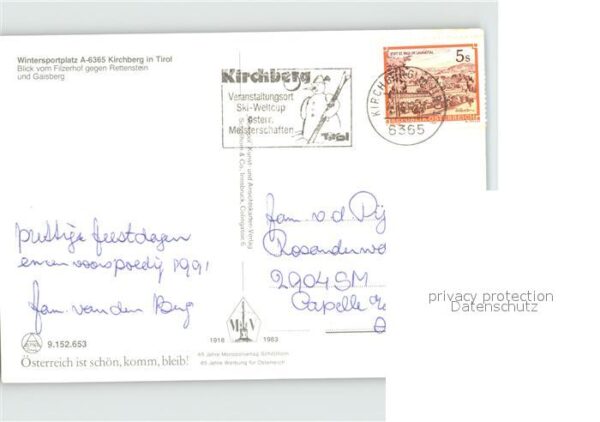 Wintersportplatz A-6365 Kirchberg in Tirol
Blick vom Filzerhof gegen Rettenstein
und Gaisberg
Kirchberg
Veranstaltungsort
Ski-Weltcup
österr.
Meisterschaften
Tirol
5s
REPUBLIK ÖSTERREICH
6365
prettige feestdagen
en een voorspoedig 1991
fam. van den Berg
Fam. v.d.
2904 SM
Capelle
privacy protection
Datenschutz
M V
1918 1983
9.152.653
65 Jahre Monopolverlag Schöllhorn
65 Jahre Werbung für Österreich
Österreich ist schön, komm, bleib!
Kunst- und Ansichtskarten-Verlag
& Co., Innsbruck, Colingasse 5